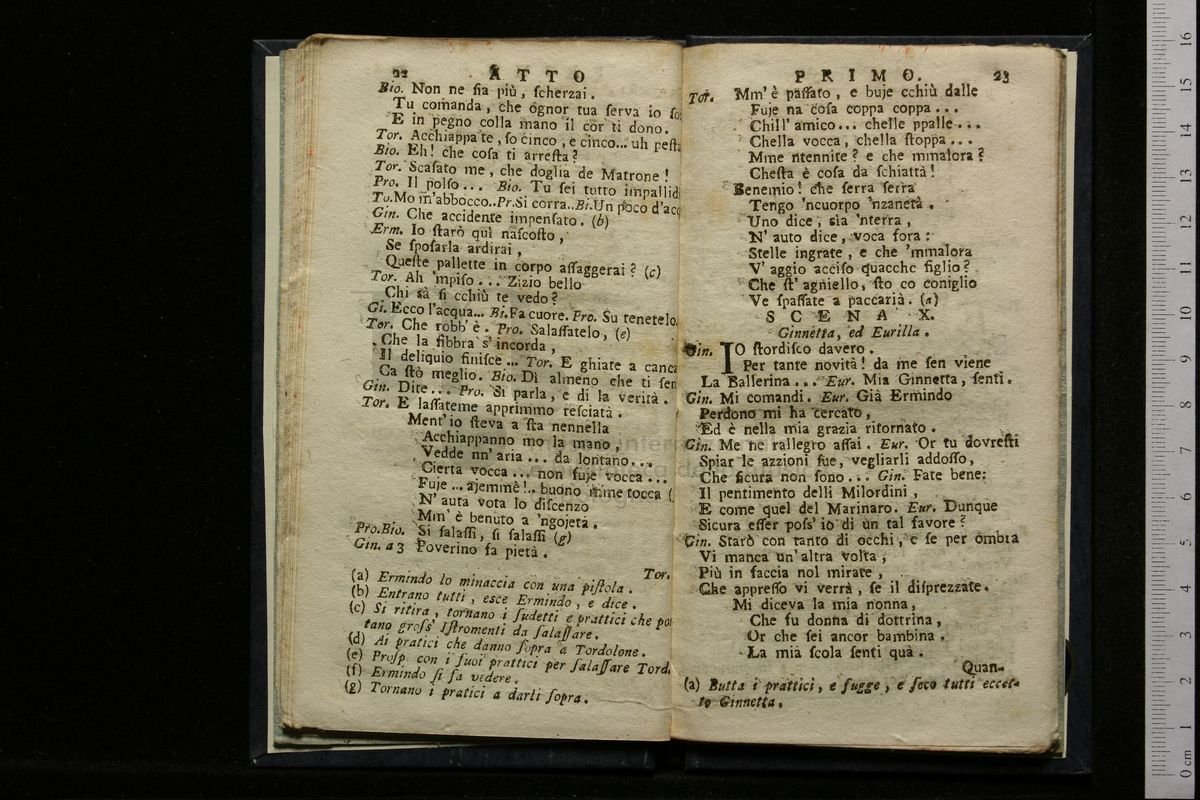 22 ATTO
Bio. Non ne ſia più, ſcherzai.
Tu comanda, che ognor tua ſerva io
E in pegno colla mano il cor ti dono.
Tor. Acchiappa te, ſo cinco, e cinco... uh
Bio. Eh! che coſa ti arreſta?
Tor. Scaſato me, che doglia de Matrone!
Pro. Il polſo... Bio. Tu ſei tutto
To.Mo m'abbocco..Pr.Si corra..Bi.Un poco
Gin. Che accidente impenſato. (b)
Erm. Io ſtarò quì naſcoſto,
Se ſpoſarla ardirai,
Queſte pallette in corpo aſſaggerai? (c)
Tor. Ah 'mpiſo... Zizio bello
Chi sà ſi cchiù te vedo?
Gi. Ecco l'acqua... Bi.Fa cuore. Pro. Su tenetelo
Tor. Che robb' è. Pro. Salaſſatelo, (e)
Che la fibbra s' incorda,
Il deliquio finiſce... Tor. E ghiate a
Ca ſtò meglio. Bio. Dì almeno che ti
Gin. Dite... Pro. Si parla, e di la verità.
Tor. E laſſateme apprimmo reſciatà.
Ment' io ſteva a ſta nennella
Acchiappanno mo la mano,
Vedde nn' aria... da lontano...
Cierta vocca... non fuje vocca...
Fuje... ajemmè!.. buono mme tocca
N' auta vota lo diſcenzo
Mm' è benuto a 'ngojetà.
Pro.Bio. Si ſalaſſi, ſi ſalaſſi (g)
Gin. a 3 Poverino fa pietà.
Tor.
(a) Ermindo lo minaccia con una piſtola.
(b) Entrano tutti, eſce Ermindo, e dice.
(c) Si ritira, tornano i ſudetti e prattici che
tano groſſ' Iſtromenti da ſalaſſare.
(d) Ai pratici che danno ſopra a Tordolone.
(e) Proſp. con i ſuoi prattici per ſalaſſare Tord.
(f) Ermindo ſi fa vedere.
(g) Tornano i pratici a darli ſopra.
PRIMO. 23
Tor. Mm' è paſſato, e buje cchiù dalle
Fuje na coſa coppa coppa...
Chill' amico... chelle ppalle...
Chella vocca, chella ſtoppa...
Mme ntennite? e che mmalora?
Cheſta è coſa da ſchiattà!
Benemio! che ſerra ſerra
Tengo 'ncuorpo 'nzanetà.
Uno dice, sia 'nterra,
N' auto dice, voca fora:
Stelle ingrate, e che 'mmalora
V' aggio acciſo quacche figlio?
Che ſt' agniello, ſto co coniglio
Ve ſpaſſate a paccarià. (a)
SCENA X.
Ginnetta, ed Eurilla.
Gin. IO ſtordiſco davero.
Per tante novità! da me ſen viene
La Ballerina... Eur. Mia Ginnetta, ſenti.
Gin. Mi comandi. Eur. Già Ermindo
Perdono mi ha cercato,
Ed è nella mia grazia ritornato.
Gin. Me ne rallegro aſſai. Eur. Or tu dovreſti
Spiar le azzioni ſue, vegliarli addoſſo,
Che ſicura non ſono... Gin. Fate bene:
Il pentimento delli Milordini,
E come quel del Marinaro. Eur. Dunque
Sicura eſſer poſs' io di un tal favore?
Gin. Starò con tanto di occhi, e ſe per ombra
Vi manca un' altra volta,
Più in faccia nol mirate,
Che appreſſo vi verrà, ſe il diſprezzate.
Mi diceva la mia nonna,
Che fu donna di dottrina,
Or che ſei ancor bambina.
La mia ſcola ſenti quà.
Quan-
(a) Butta i prattici, e fugge, e ſeco tutti eccet-
to Ginnetta.
0 cm 1 2 3 4 5 6 7 8 9 10 11 12 13 14 15 16